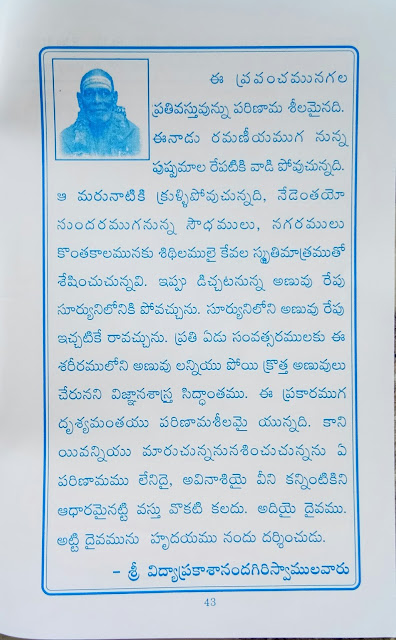 ఈ ప్రపంచమునగల
ప్రతివస్తువున్ను పరిణామ శీలమైనది.
ఈనాడు రమణీయముగ నున్న
పుష్పమాల రేపటికి వాడి పోవుచున్నది.
ఆ మరునాటికి క్రుళ్ళిపోవుచున్నది, నేడెంతయో
సుందరముగనున్న సౌధములు, నగరములు
కొంతకాలమునకు శిథిలములై కేవల స్మృతిమాత్రముతో
శేషించుచున్నవి. ఇప్పు డిచ్చటనున్న అణువు రేపు
సూర్యునిలోనికి పోవచ్చును. సూర్యునిలోని అణువు రేపు
ఇచ్చటికే రావచ్చును. ప్రతి ఏడు సంవత్సరములకు ఈ
శరీరములోని అణువు లన్నియు పోయి క్రొత్త అణువులు
చేరునని విజ్ఞానశాస్త్ర సిద్ధాంతము. ఈ ప్రకారముగ
దృశ్యమంతయు పరిణామశీలమై యున్నది. కాని
యివన్నియు మారుచున్ననునశించుచున్నను ఏ
పరిణామము లేనిదై, అవినాశియై వీని కన్నింటికిని
ఆధారమైనట్టి వస్తు వొకటి కలదు. అదియై దైవము.
అట్టి దైవమును హృదయము నందు దర్శించుడు.
– శ్రీ విద్యాప్రకాశానందగిరిస్వాములవారు
43